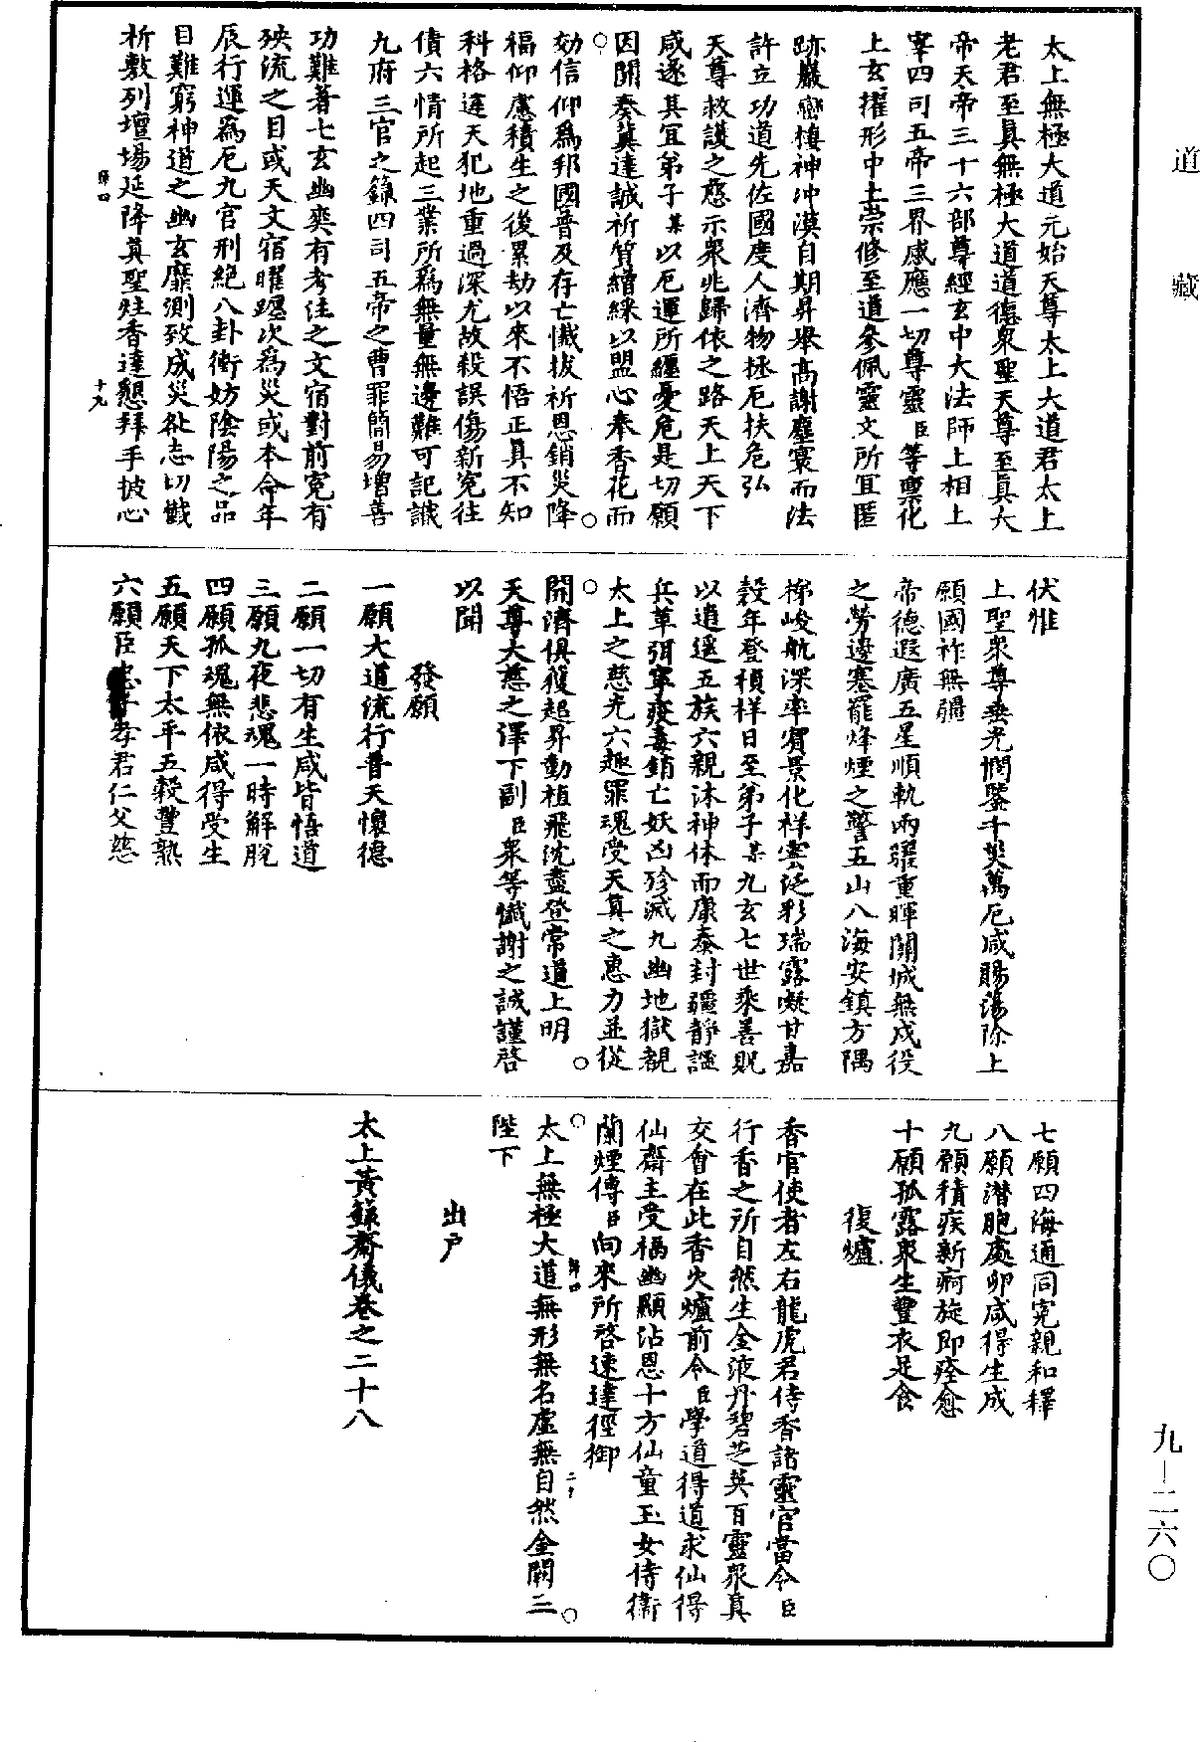 道藏
太上無極大道元始天尊太上大道君太上
老君至真無極大道道德衆聖天尊至真大
帝天帝三十六部尊經玄中大法師上相上
宰四司五帝三界感應一切尊靈臣等稟化
上玄擢形中土崇修至道參佩靈文所宜匿
跡巖巒棲神沖漠自期昇舉高謝塵寰而法
許立功道先佐國度人濟物拯厄扶危弘
天尊救護之慈示衆兆歸依之路天上天下
咸遂其宜弟子某以厄運所纏憂危是切願
因開奏冀達誠祈質繒綵以盟心奉香花而
効信仰爲邦國普及存亡懺拔祈恩銷災降
福仰慮積生之後累劫以來不悟正真不知
科格違天犯地重過深尤故殺誤傷新寃往
債六情所起三業所爲無量無邊難可記識
九府三官之錄四司五帝之曹罪簡易增善
功難著七玄幽爽有考往之文宿對前寃有
殃流之目或天文宿曜躔次爲災或本命年
辰行運爲厄九宮刑絕八卦衝妨陰陽之品
目難窮神道之幽玄靡測致成災欲志切懺
祈敷列壇場延降真聖炷香達懇拜手披心
歸四 十九
伏惟
上聖衆尊垂光憫鑒千災萬厄咸賜蕩除上
願國祚無疆
帝德遐廣五星順軌兩曜重暉關城無戍役
之勞邊塞罷烽煙之警五山八海安鎮方隅
梯峻航深率賓景化祥雲泛彩瑞露凝甘嘉
穀年登禎祥日至弟子某九玄七世乘善貺
以逍遙五族六親沐神休而康泰封疆靜謐
兵革弭寧疫毒銷亡妖凶殄滅九幽地獄覩
太上之慈光六趣罪魂受天真之惠力並從
開濟俱獲超昇動植飛沈盡登常道上明
天尊大慈之澤下副臣衆等懺謝之誠謹啓
以聞
發願
一願大道流行普天懷德
二願一切有生咸皆悟道
三願九夜悲魂一時解脫
四願孤魂無依咸得受生
五願天下太平五穀豐熟
六願臣忠子孝君仁父慈
七願四海通同寃親和釋
八願潛胞處卵咸得生成
九願積疾新痾旋即痊愈
十願孤露衆生豐衣足食
復爐
香官使者左右龍虎君侍香諸靈官當令臣
行香之所自然生金液丹碧芝英百靈衆真
交會在此香火爐前令臣學道得道求仙得
仙齋主受福幽顯沾恩十方仙童玉女侍衛
蘭煙傳臣向來所啓速達徑御
太上無極大道無形無名虛無自然金闕三
歸四 二十
陛下
出戶
太上黃籙齋儀卷之二十八
九—二六〇